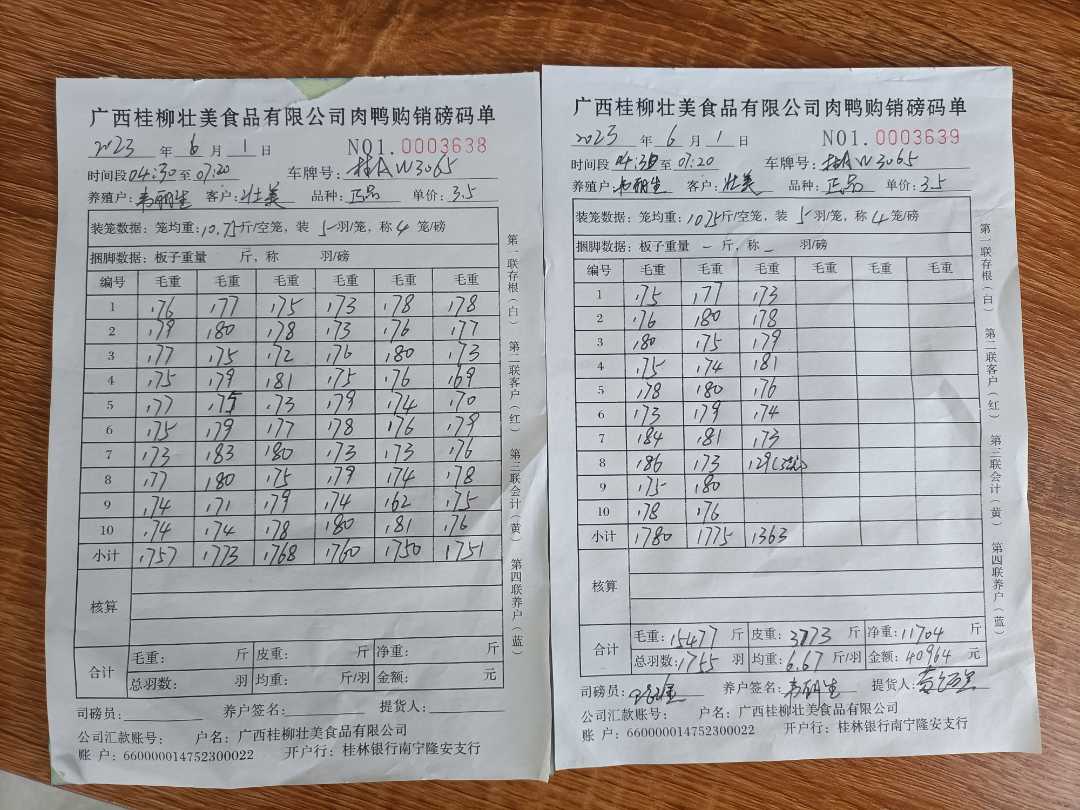 广西桂柳壮美食品有限公司肉鸭购销磅码单
2023 年 6 月 1 日 NO1. 0003638
时间段 04:30 至 07:20 车牌号: 桂AW3065
养殖户: 韦丽生 客户: 壮美 品种: 正品 单价: 3.5
装笼数据: 笼均重: 10.75 斤/空笼, 装 5 羽/笼, 称 4 笼/磅
捆脚数据: 板子重量 斤, 称 羽/磅
编号 毛重 毛重 毛重 毛重 毛重 毛重
1 176 177 175 173 178 178
2 179 180 178 173 176 177
3 177 175 172 176 180 173
4 175 179 181 175 176 169
5 177 175 173 179 174 170
6 175 179 177 178 176 179
7 173 183 180 173 173 176
8 177 180 175 179 174 178
9 174 171 179 174 162 175
10 174 174 178 180 181 176
小计 1757 1773 1768 1760 1750 1751
核算
合计 毛重: 斤 皮重: 斤 净重: 斤
总羽数: 羽 均重: 斤/羽 金额: 元
司磅员: 养户签名: 提货人:
公司汇款账号: 户名: 广西桂柳壮美食品有限公司
账 户: 660000014752300022 开户行: 桂林银行南宁隆安支行
第一联存根(白) 第二联客户(红) 第三联会计(黄) 第四联养户(蓝)
广西桂柳壮美食品有限公司肉鸭购销磅码单
2023 年 6 月 1 日 NO1. 0003639
时间段 04:30 至 07:20 车牌号: 桂AW3065
养殖户: 韦丽生 客户: 壮美 品种: 正品 单价: 3.5
装笼数据: 笼均重: 10.75 斤/空笼, 装 5 羽/笼, 称 4 笼/磅
捆脚数据: 板子重量 — 斤, 称 — 羽/磅
编号 毛重 毛重 毛重 毛重 毛重 毛重
1 175 177 173
2 176 180 178
3 180 175 179
4 175 174 181
5 178 180 176
6 173 179 174
7 184 181 173
8 186 173 129
9 175 180
10 178 176
小计 1780 1775 1363
核算
合计 毛重: 15477 斤 皮重: 3773 斤 净重: 11704 斤
总羽数: 1755 羽 均重: 6.67 斤/羽 金额: 40964 元
司磅员: 养户签名: 韦丽生 提货人:
公司汇款账号: 户名: 广西桂柳壮美食品有限公司
账 户: 660000014752300022 开户行: 桂林银行南宁隆安支行
第一联存根(白) 第二联客户(红) 第三联会计(黄) 第四联养户(蓝)